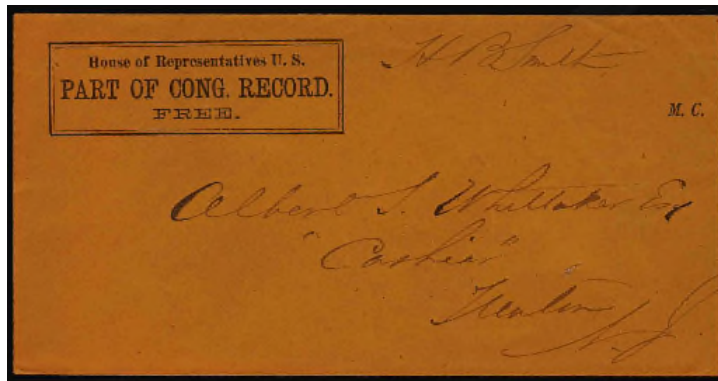 House of Representatives U. S.
PART OF CONG. RECORD.
FREE.
H B Smith
M. C.
Albert S. Whittaker Esq
"Cashier"
Trenton
N. J.